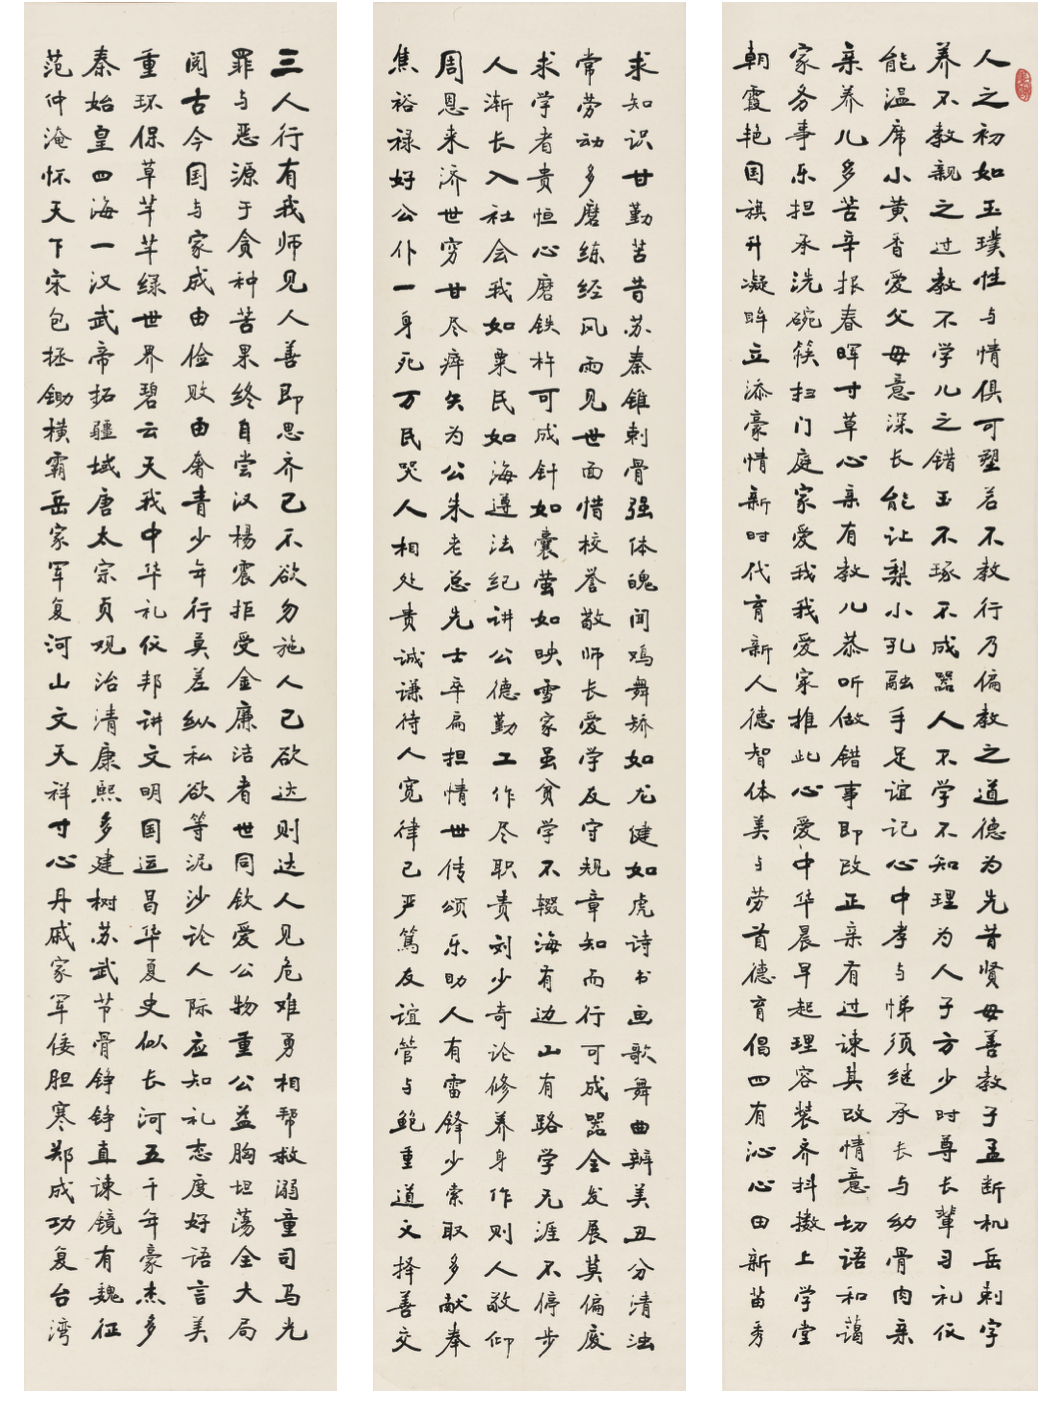 人之初如玉璞性与情俱可塑若不教行乃偏教之道德为先昔贤母善教子孟断机岳刺字
养不教亲之过教不学儿之错玉不琢不成器人不学不知理为人子方少时尊长辈习礼仪
能温席小黄香爱父母意深长能让梨小孔融手足谊记心中孝与悌须继承长与幼骨肉亲
亲养儿多苦辛报春晖寸草心亲有教儿恭听做错事即改正亲有过谏其改情意切语和蔼
家务事乐担承洗碗筷扫门庭家爱我我爱家推此心爱中华晨早起理容装齐抖擞上学堂
朝霞艳国旗升凝眸立添豪情新时代育新人德智体美与劳首德育倡四有沁心田新苗秀
求知识甘勤苦昔苏秦锥刺骨强体魄闻鸡舞矫如龙健如虎诗书画歌舞曲辨美丑分清浊
常劳动多磨练经风雨见世面惜校誉敬师长爱学友守规章知而行可成器全发展莫偏废
求学者贵恒心磨铁杵可成针如囊萤如映雪家虽贫学不辍海有边山有路学无涯不停步
人渐长入社会我如粟民如海遵法纪讲公德勤工作尽职责刘少奇论修养身作则人敬仰
周恩来济世穷甘尽瘁矢为公朱老总先士卒扁担情世传颂乐助人有雷锋少索取多献奉
焦裕禄好公仆一身死万民哭人相处贵诚谦待人宽律己严笃友谊管与鲍重道义择善交
三人行有我师见人善即思齐己不欲勿施人己欲达则达人见危难勇相帮救溺童司马光
罪与恶源于贪种苦果终自尝汉杨震拒受金廉洁者世同钦爱公物重公益胸坦荡全大局
阅古今国与家成由俭败由奢青少年行莫差纵私欲等泥沙论人际应知礼态度好语言美
重环保草芊芊绿世界碧云天我中华礼仪邦讲文明国运昌华夏史似长河五千年豪杰多
秦始皇四海一汉武帝拓疆域唐太宗贞观治清康熙多建树苏武节骨铮铮直谏镜有魏征
范仲淹怀天下宋包拯锄横霸岳家军复河山文天祥寸心丹戚家军倭胆寒郑成功复台湾